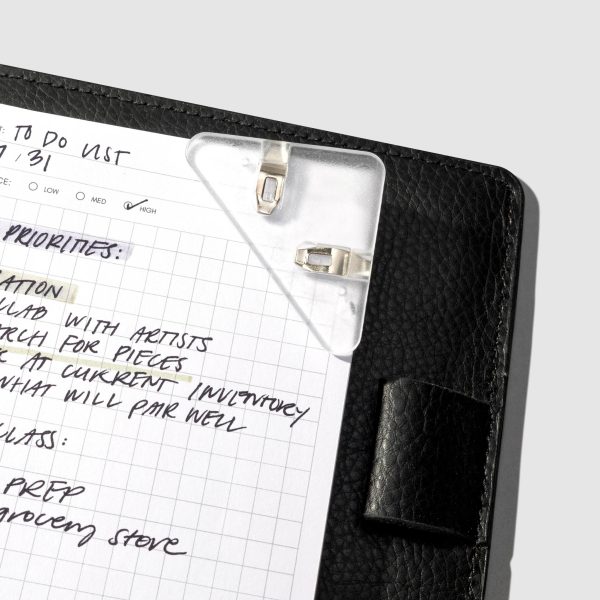 TO DO LIST
/31
CE: LOW MED HIGH
PRIORITIES:
ATION
LLAB WITH ARTISTS
ARCH FOR PIECES
K AT CURRENT INVENTORY
WHAT WILL PAIR WELL
CLASS:
PREP
grocery store